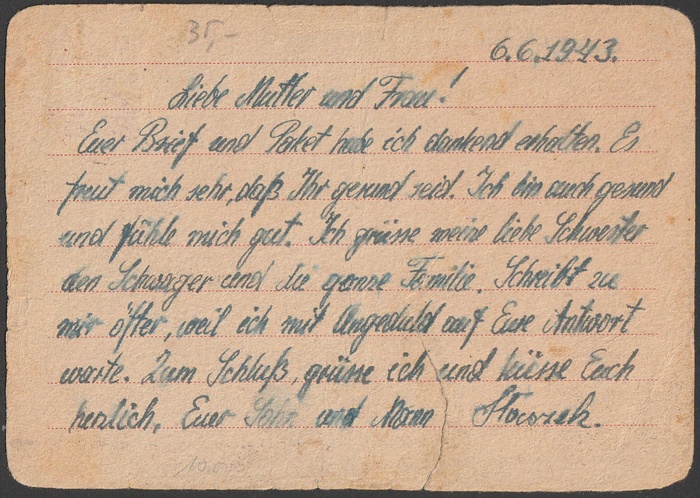 35,-
6.6.1943.
Liebe Mutter und Frau!
Euer Brief und Paket habe ich dankend erhalten. Es
freut mich sehr, daß Ihr gesund seid. Ich bin auch gesund
und fühle mich gut. Ich grüsse meine liebe Schwester
den Schwager und die ganze Familie. Schreibt zu
mir öfter, weil ich mit Ungeduld auf Eure Antwort
warte. Zum Schluß, grüsse ich und küsse Euch
herzlich, Euer Sohn und Mann